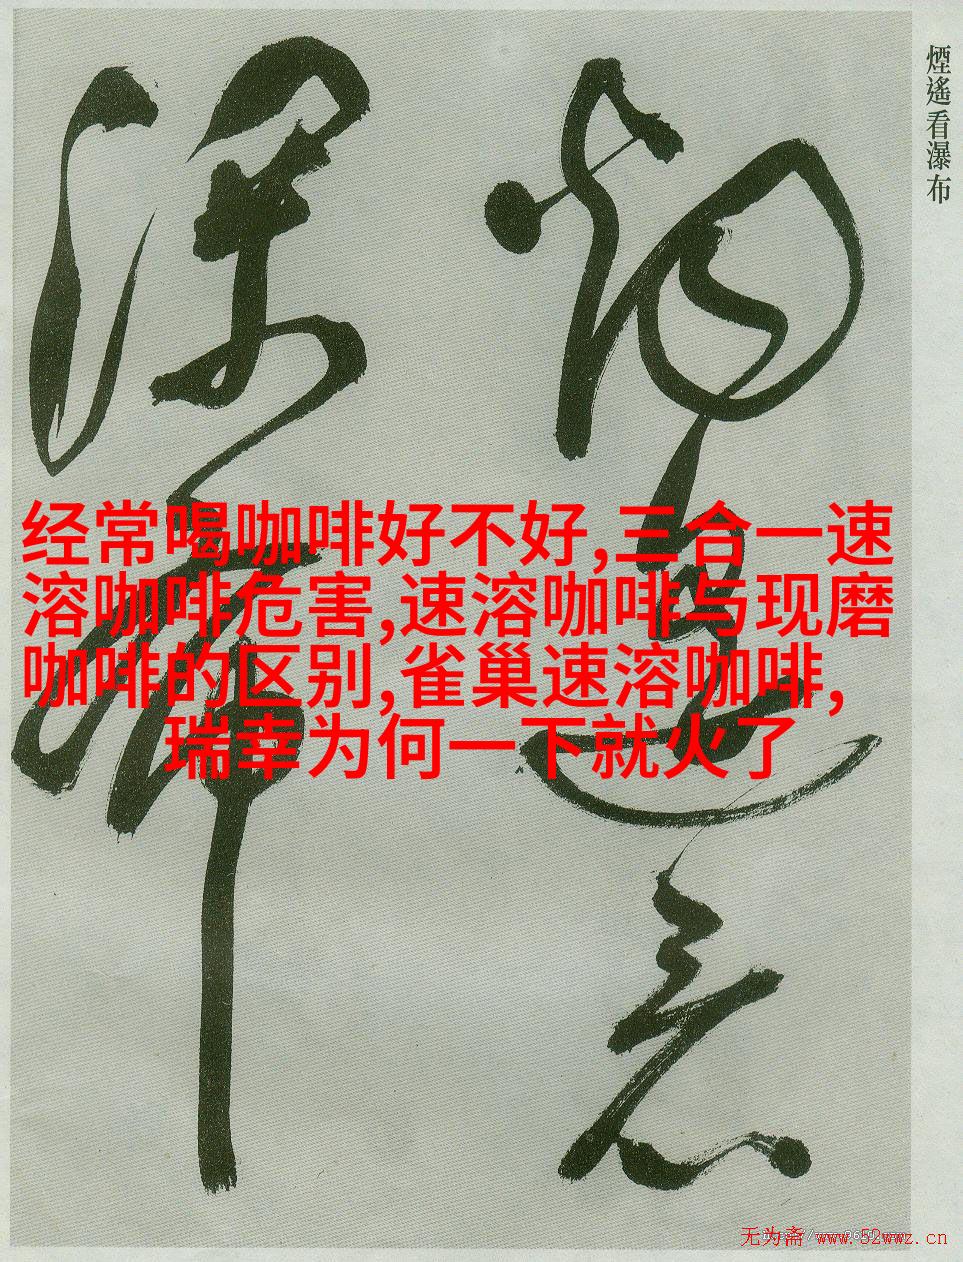 煙遙看瀑布
煙遥看
瀑布
经常喝咖啡好不好,三合一速
溶咖啡危害,速溶咖啡与现磨
咖啡的区别,雀巢速溶咖啡,
瑞幸为何一下就火了
无为斋 www.52wwz.cn